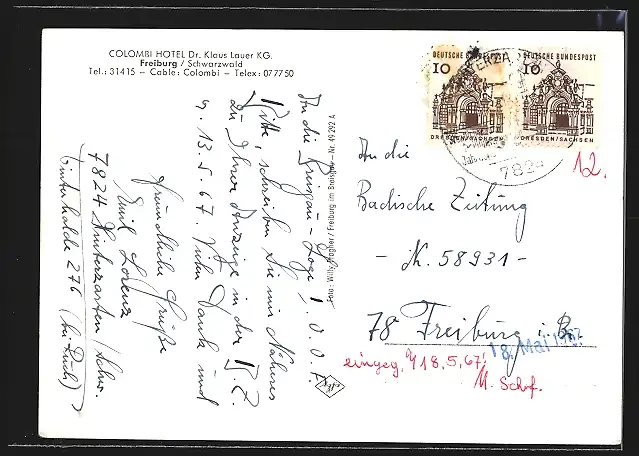 COLOMBI HOTEL Dr. Klaus Lauer KG.
Freiburg / Schwarzwald
Tel.: 31415 – Cable: Colombi – Telex: 077750
An die Breisgau-Loge I.O.O.F.
Bitte, schreiben Sie mir Näheres
zu Ihrer Anzeige in der B.Z.
v. 13.5.67. Vielen Dank und
freundliche Grüße
Emil Lorenz
7824 Hinterzarten / Schw.
Winterhalde 276 (bei Puch)
Foto: Willy Pragher / Freiburg im Breisgau – Nr. 69 292 A
DEUTSCHE BUNDESPOST
10
DRESDEN/SACHSEN
DEUTSCHE BUNDESPOST
10
DRESDEN/SACHSEN
782
12.
An die
Badische Zeitung
- N. 58931 -
78 Freiburg i. B.
18. Mai 1967
eingeg. 18.5.67.